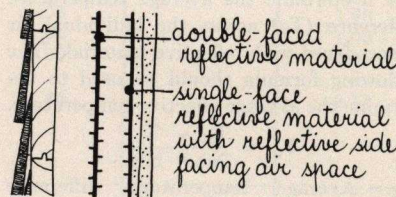 double-faced
reflective material
single-face
reflective material
with reflective side
facing air space